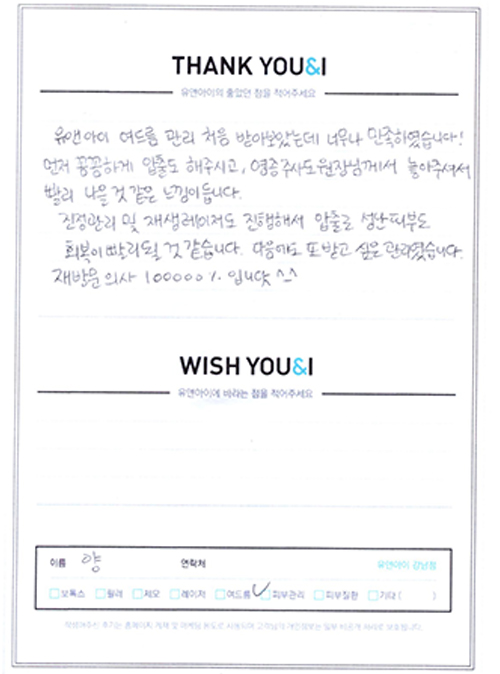 THANK YOU&I
유앤아이의 좋았던 점을 적어주세요
유앤아이 여드름 관리 처음 받아보았는데 너우나 만족하였습니다!
먼저 꼼꼼하게 압출도 해주시고, 염증주사도 원장님께서 놓아주셔서
빨리 나을 것 같은 느낌이듭니다.
진정관리 및 재생레이저도 진행해서 압출로 성난피부도
회복이 빨리될 것 같습니다. 다음에도 또 받고 싶은 관리였습니다.
재방문의사 100000% 입니닷 ^_^
WISH YOU&I
유앤아이에 바라는 점을 적어주세요
이름 양 연락처 유앤아이 강남점
보톡스 필러 제모 레이저 여드름 피부관리 피부질환 기타 ( )
작성해주신 후기는 홈페이지 게재 및 마케팅 용도로 사용되며 고객님의 개인정보는 일부 비공개 처리로 보호됩니다.